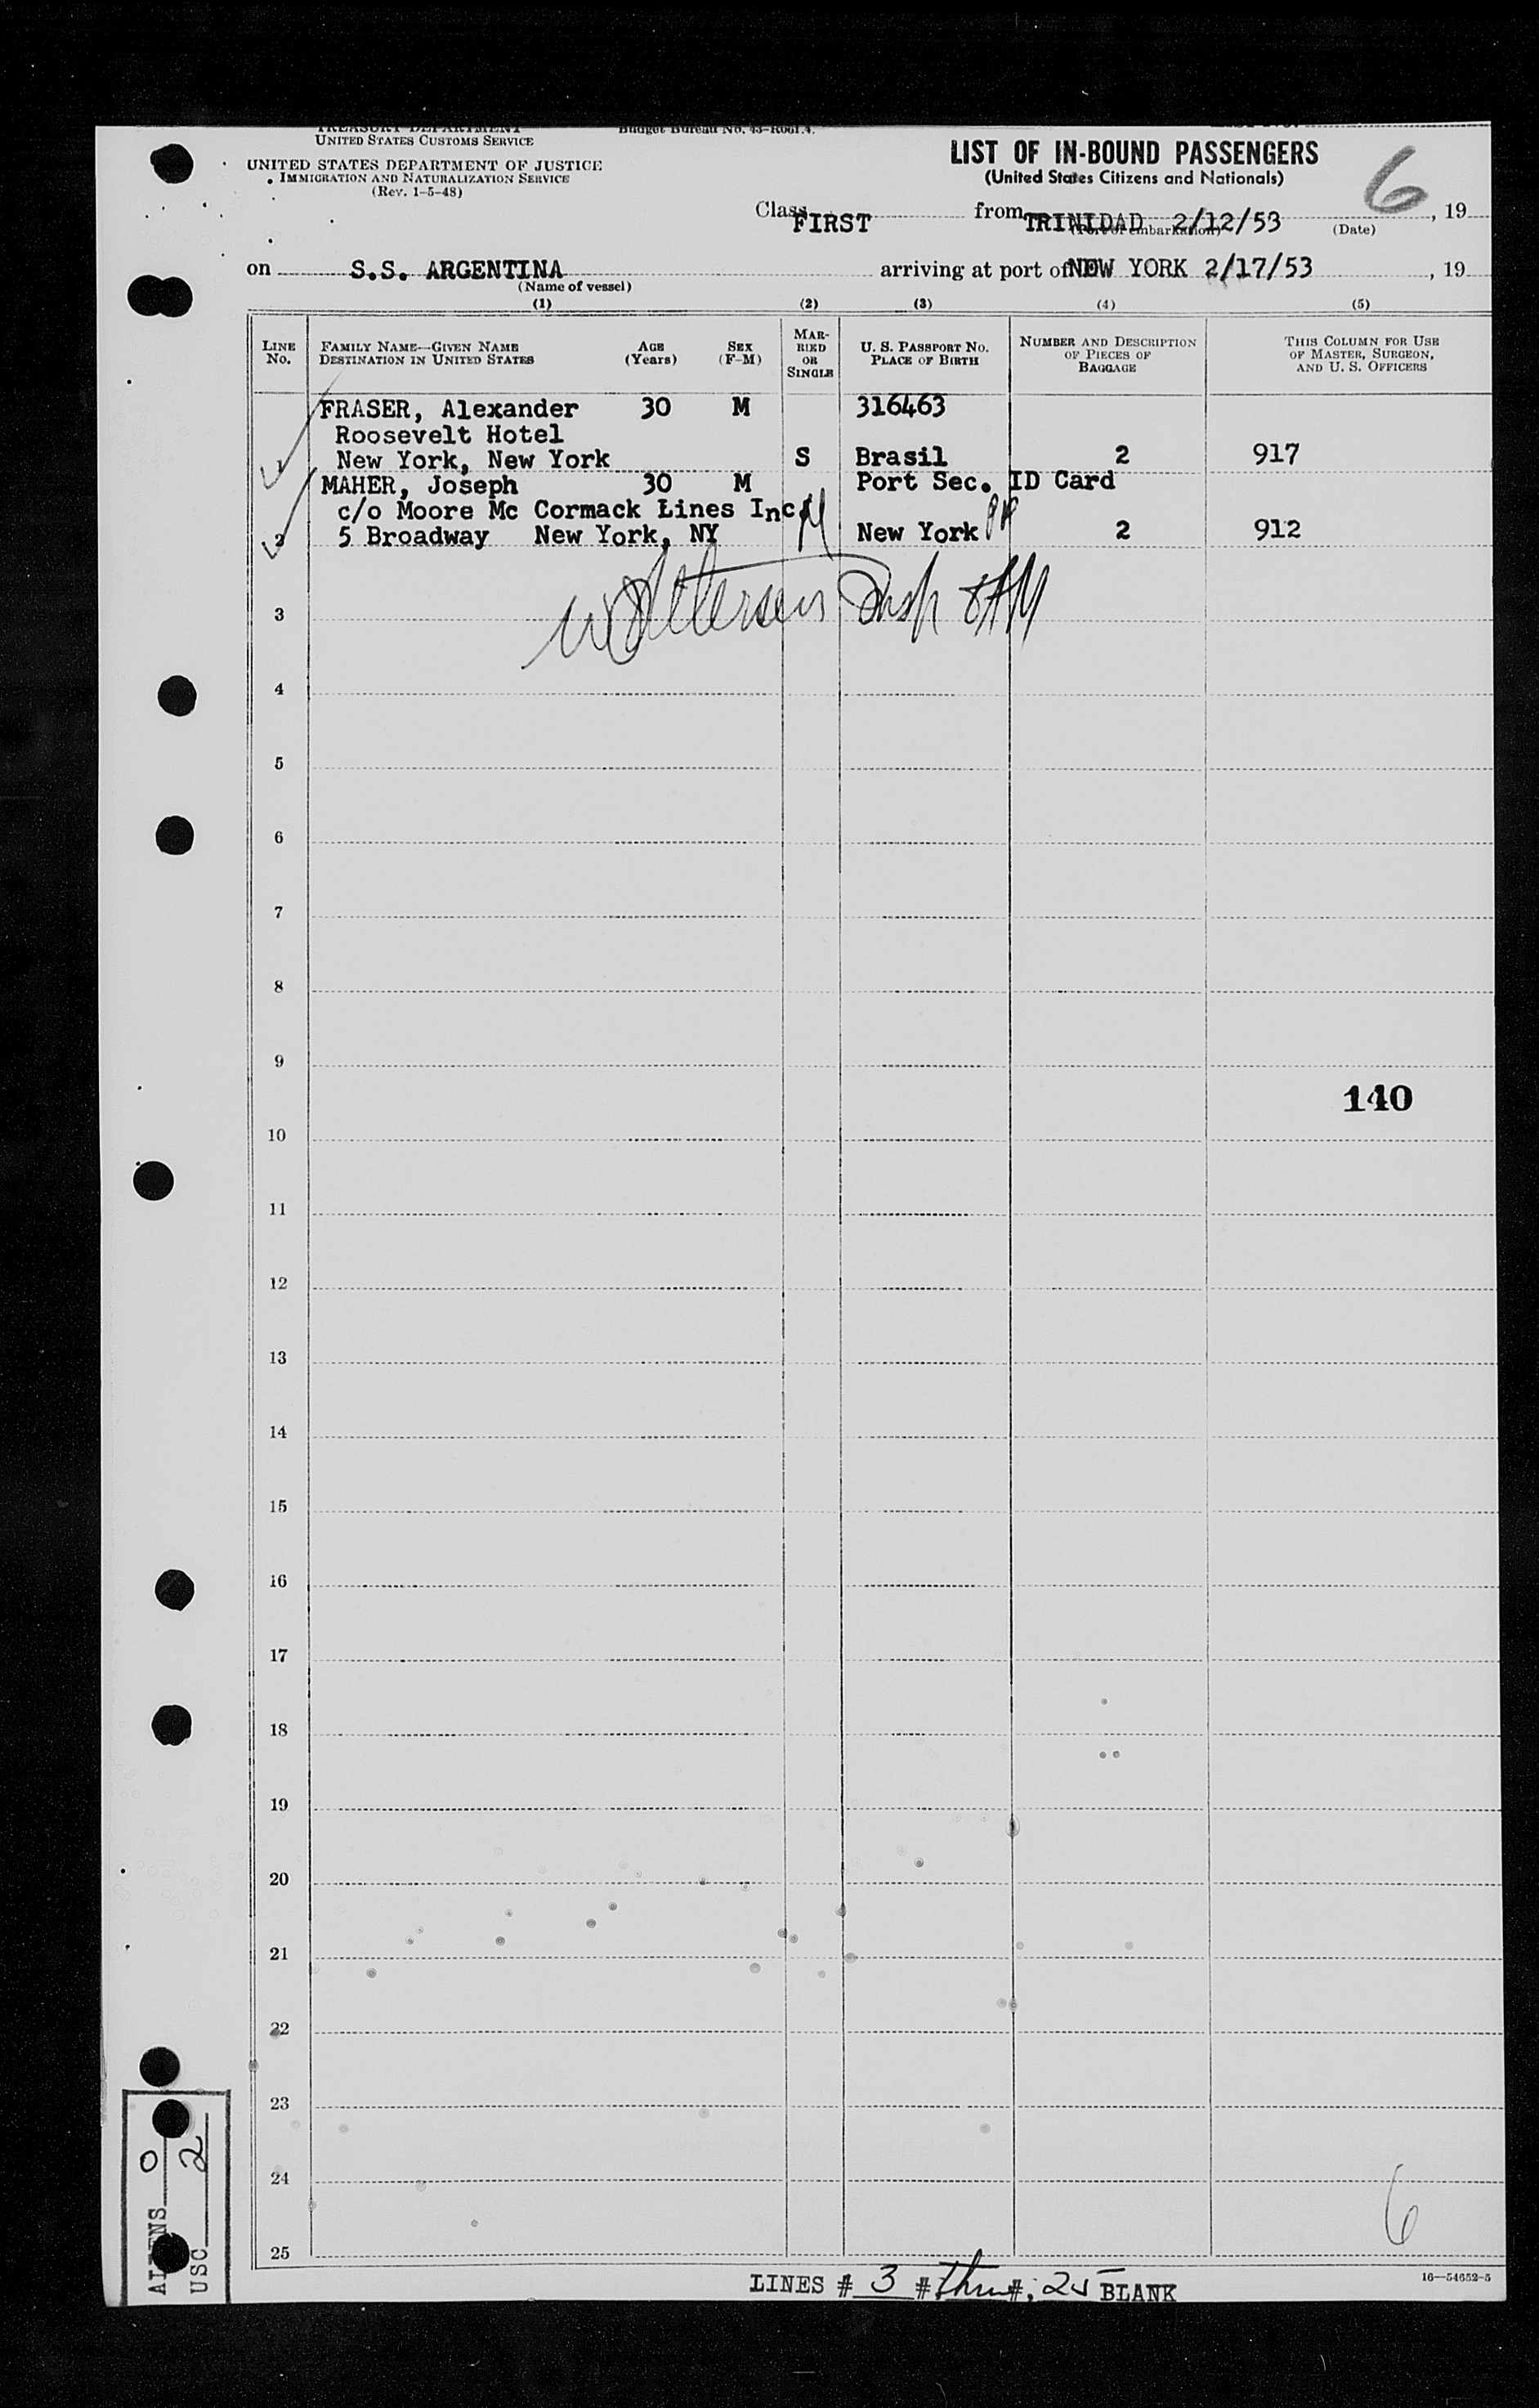 TREASURY DEPARTMENT
UNITED STATES CUSTOMS SERVICE
Budget Bureau No. 43-R061.4.
UNITED STATES DEPARTMENT OF JUSTICE
IMMIGRATION AND NATURALIZATION SERVICE
(Rev. 1-5-48)
LIST OF IN-BOUND PASSENGERS
(United States Citizens and Nationals)
6
Class FIRST from TRINIDAD 2/12/53, 19
(Port of embarkation) (Date)
on S.S. ARGENTINA arriving at port of NEW YORK 2/17/53, 19
(Name of vessel)
(1) (2) (3) (4) (5)
LINE No. FAMILY NAME—GIVEN NAME DESTINATION IN UNITED STATES AGE (Years) SEX (F-M) MARRIED OR SINGLE U. S. PASSPORT NO. PLACE OF BIRTH NUMBER AND DESCRIPTION OF PIECES OF BAGGAGE THIS COLUMN FOR USE OF MASTER, SURGEON, AND U. S. OFFICERS
FRASER, Alexander 30 M 316463
Roosevelt Hotel
1 New York, New York S Brasil 2 917
MAHER, Joseph 30 M Port Sec. ID Card
c/o Moore Mc Cormack Lines Inc. M
2 5 Broadway New York, NY New York 2 912
3
4
5
6
7
8
9
140
10
11
12
13
14
15
16
17
18
19
20
21
22
23
24
6
25
ALIENS 0
USC 2
LINES # 3 # thru #: 25 BLANK
16—54652-5